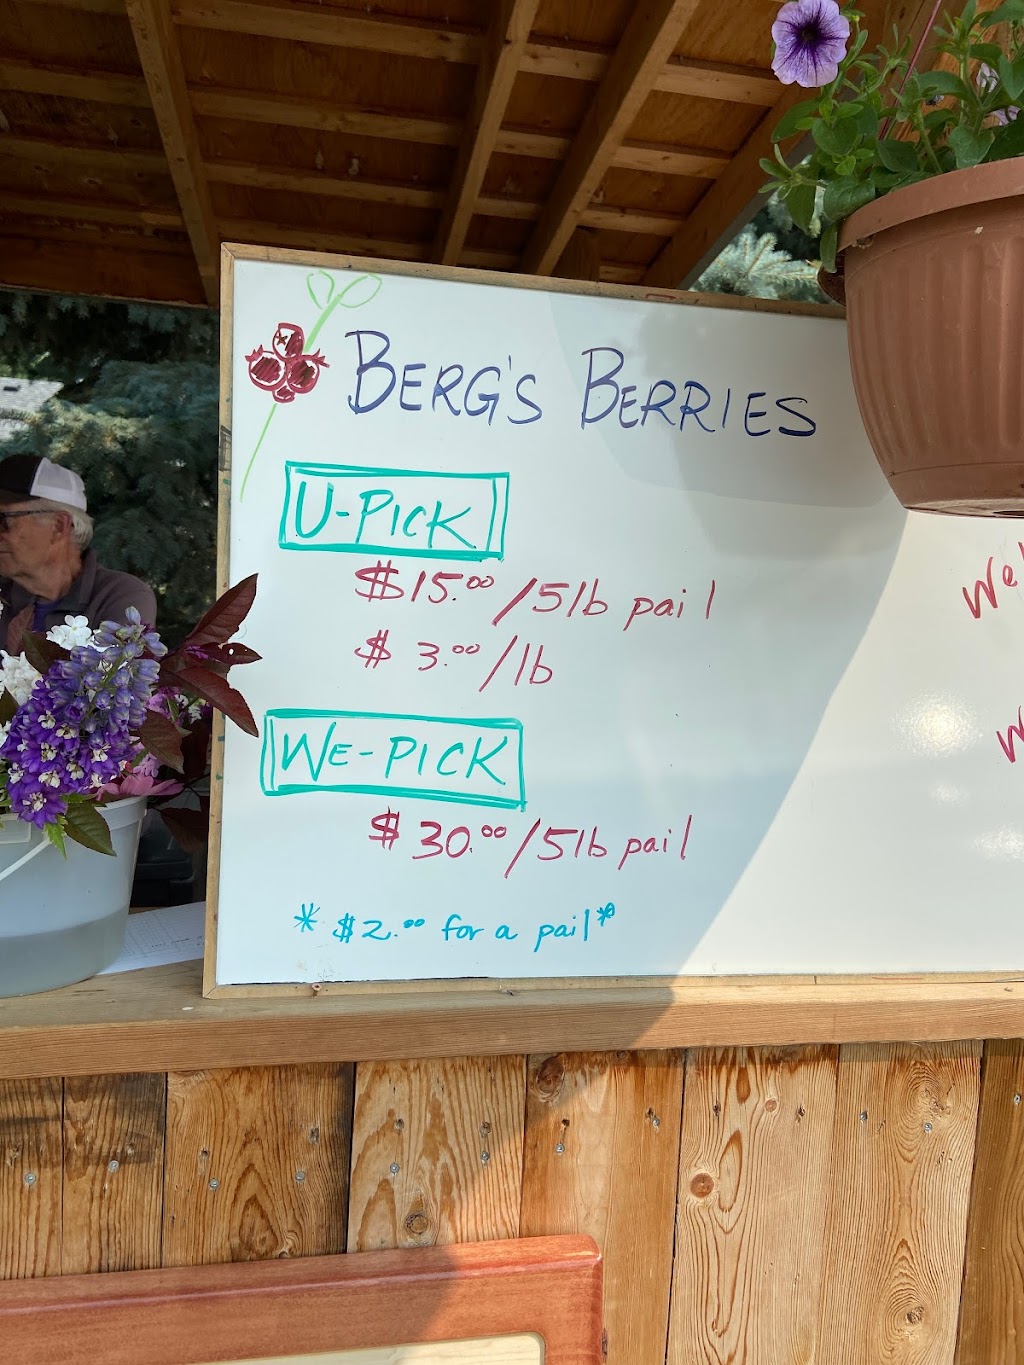 BERG'S BERRIES
U-PICK
$15.00/5lb pail
$3.00/lb
WE-PICK
$30.00/5lb pail
*$2.00 for a pail*